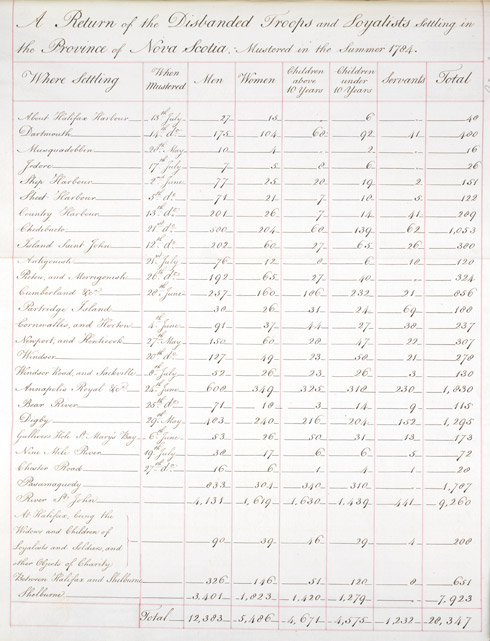 A Return of the Disbanded Troops and Loyalists Settling in
the Province of Nova Scotia; Mustered in the Summer 1784.
Where Settling When Mustered Men Women Children above 10 Years Children under 10 Years Servants Total
About Halifax Harbour 15th July 27 15 . 6 . 48
Dartmouth 14th do. 175 104 68 92 41 480
Musquadobbin 20th May 10 4 . 2 . 16
Jedore 17th July 7 5 8 6 . 26
Ship Harbour 2nd June 77 25 28 19 2 151
Sheet Harbour 5th do. 71 21 7 18 5 122
Country Harbour 13th do. 201 26 7 14 41 289
Chedabucto 21st do. 580 204 68 139 62 1,053
Island Saint John 12th do. 202 60 27 65 26 380
Antigonish 21st July 76 12 8 6 18 120
Pictou, and Merrigomish 26th do. 192 65 27 40 324
Cumberland &ca. 28th June 257 160 186 232 21 856
Partridge Island 38 26 31 24 69 188
Cornwallis, and Horton 4th June 91 37 44 27 38 237
Newport, and Kenticook 27th May 150 60 28 47 22 307
Windsor 20th do. 127 49 23 58 21 278
Windsor Road, and Sackville 8th July 52 26 23 26 3 130
Annapolis Royal &ca. 24th June 608 349 325 318 230 1,830
Bear River 25th do. 71 18 3 14 9 115
Digby 29th May 483 240 216 204 152 1,295
Gullivers Hole St. Mary's Bay 6th June 53 26 50 31 13 173
Nine Mile River 19th July 38 17 6 6 5 72
Chester Road 27th do. 16 6 1 4 1 28
Passamaquody 833 304 340 310 1,787
River St. John 4,131 1,619 1,630 1,439 441 9,260
At Halifax, being the
Widows and Children of
Loyalists and Soldiers, and 90 39 46 29 4 208
other Objects of Charity
Between Halifax and Shelburne 326 146 51 120 8 651
Shelburne 3,401 1,823 1,420 1,279 7,923
Total 12,383 5,486 4,671 4,575 1,232 28,347